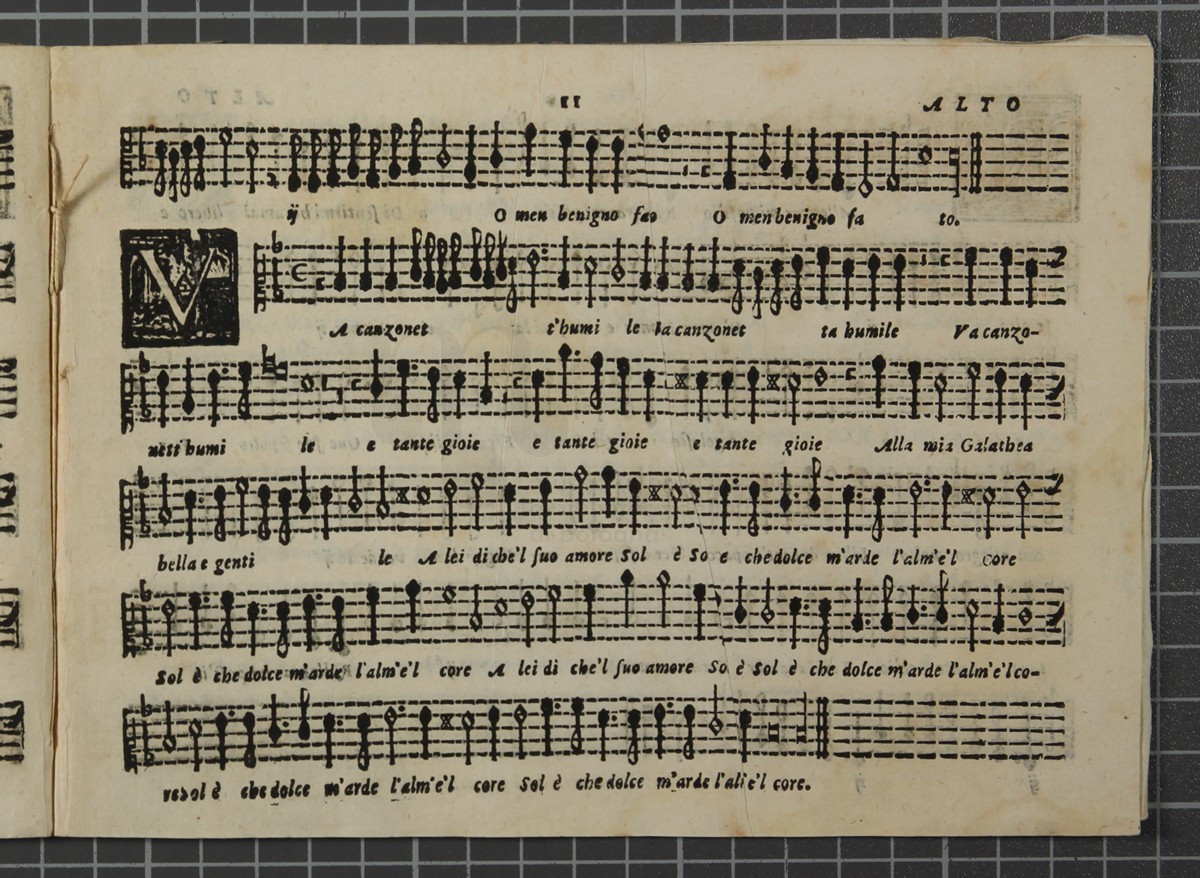 11 ALTO
ij O men benigno fao O men benigno fa to.
VA canzonet t'humi le la canzonet ta humile Va canzo-
nett'humi le e tante gioie e tante gioie e tante gioie Alla mia Galathea
bella e genti le A lei di che'l suo amore Sol è So e che dolce m'arde l'alm'e'l core
Sol è che dolce m'arde l'alm'e'l core A lei di che'l suo amore So è Sol è che dolce m'arde l'alm'e'l co-
re Sol è che dolce m'arde l'alm'e'l core Sol è che dolce m'arde l'al e'l core.